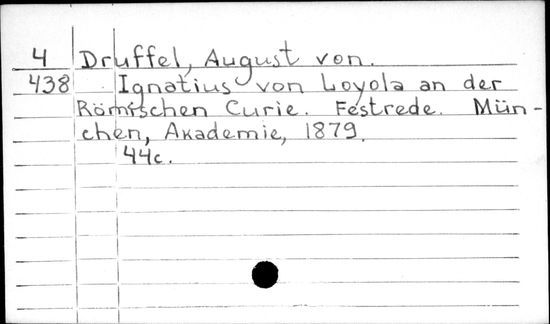 4 Druffel, August von.
438 Ignatius von Loyola an der
Römischen Curie. Festrede. Mün-
chen, Akademie, 1879.
44c.